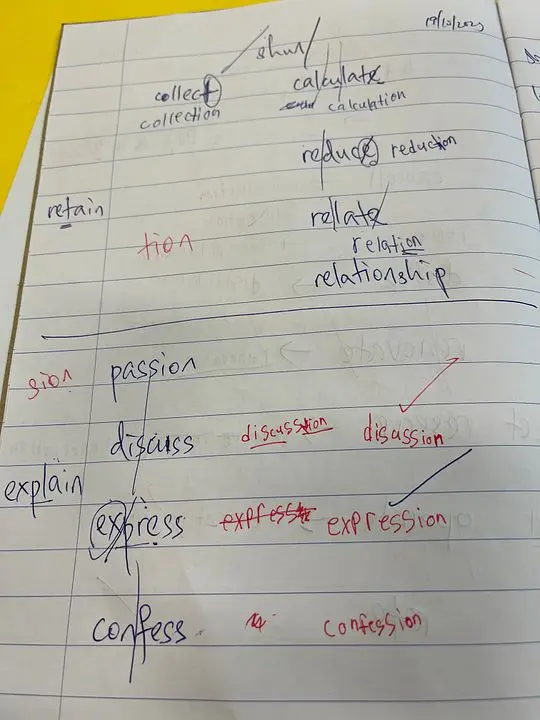 19/10/2023
/shun/
collect calculate
collection calculation
reduce reduction
retain rellate
tion relation
relationship
sion passion
discuss discusstion disassion
explain
express expresst expression
confess confession